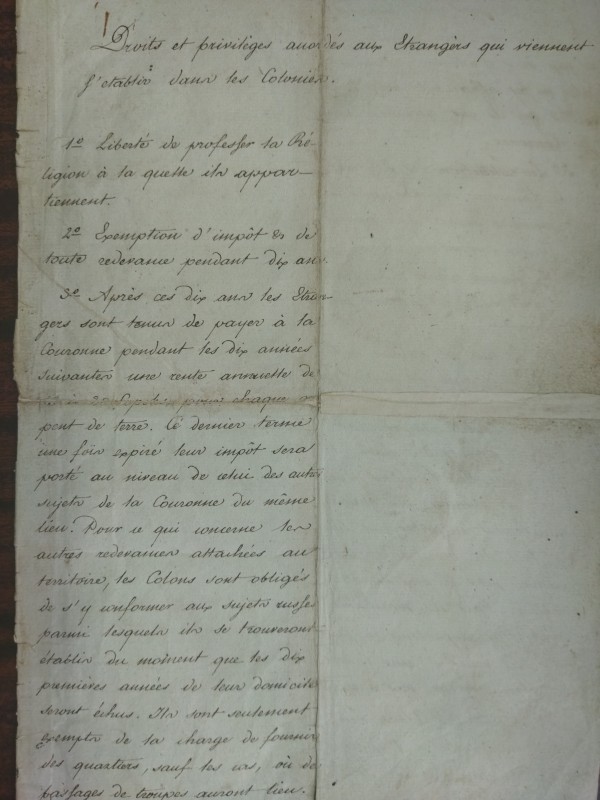 Droits et privilèges accordés aux Etrangèrs qui viennent
s'etablir dans les Colonies.
1º Liberté de professer la Ré-
ligion à la quelle ils appar-
tiennent.
2º Exemption d'impôt & de
toute redevance pendant dix ans
3º Après ces dix ans les Etran-
gers sont tenus de payer à la
Couronne pendant les dix années
suivantes une rente annuelle de
pour chaque
pent de terre. Ce dernier terme
une fois expiré leur impôt sera
porté au niveau de celui des autres
sujets de la Couronne du même
lieu. Pour ce qui concerne les
autres redevances attachées au
territoire, les Colons sont obligés
de s'y conformer aux sujets russes
parmi lesquels ils se trouveront
établis du moinent que les dix
premières années de leur domicile
seront échus. Ils sont seulement
exempts de la charge de fournir
des quartiers, sauf les cas, où de
passages de troupes auront lieu.